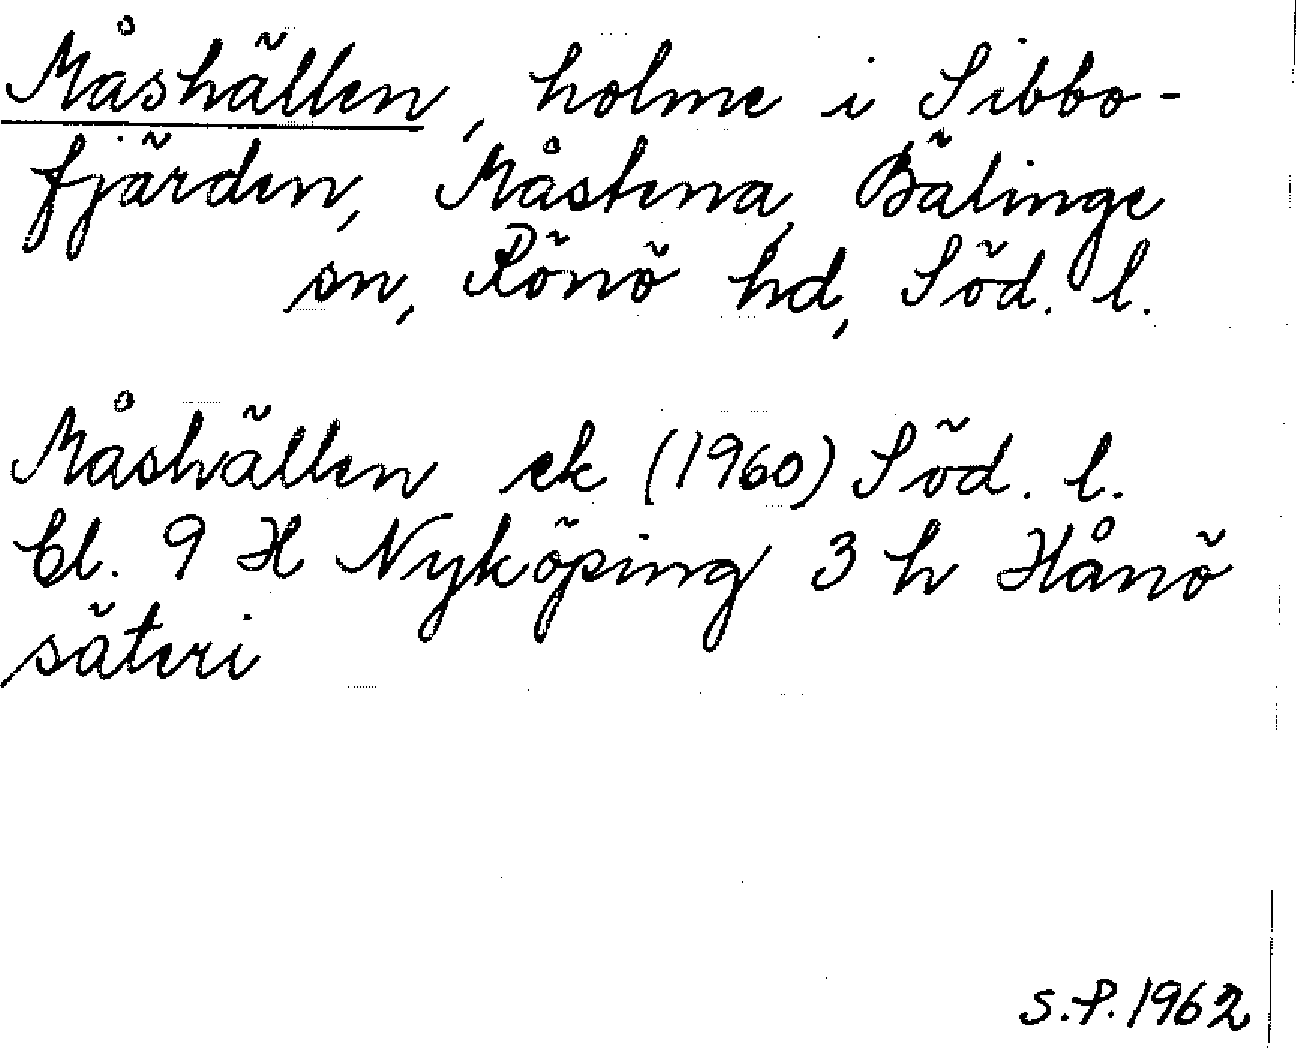 Måshällen, holme i Sibbo-
fjärden, Måstena, Bälinge
sn, Rönö hd, Söd. l.
Måshällen ek (1960) Söd. l.
Bl. 9 H Nyköping 3 h Hånö
säteri
S.P. 1962